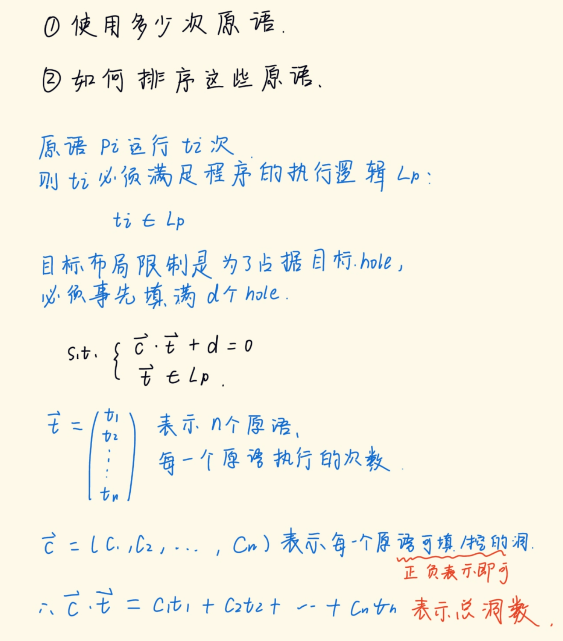 ① 使用多少次原语.
② 如何排序这些原语.
原语 Pi 运行 ti 次.
则 ti 必须满足程序的执行逻辑 Lp:
ti ∈ Lp
目标布局限制是为了占据目标.hole,
必须事先填满 d个 hole.
s.t. { c⃗ · t⃗ + d = 0
t⃗ ∈ Lp .
t⃗ = ( t1 t2 ⋮ tn ) 表示 n个原语,
每一个原语执行的次数
c⃗ = ( C1, C2, ..., Cn ) 表示每一个原语可填/挖的洞.
正负表示即可
∴ c⃗ · t⃗ = C1t1 + C2t2 + ... + Cntn 表示总洞数.